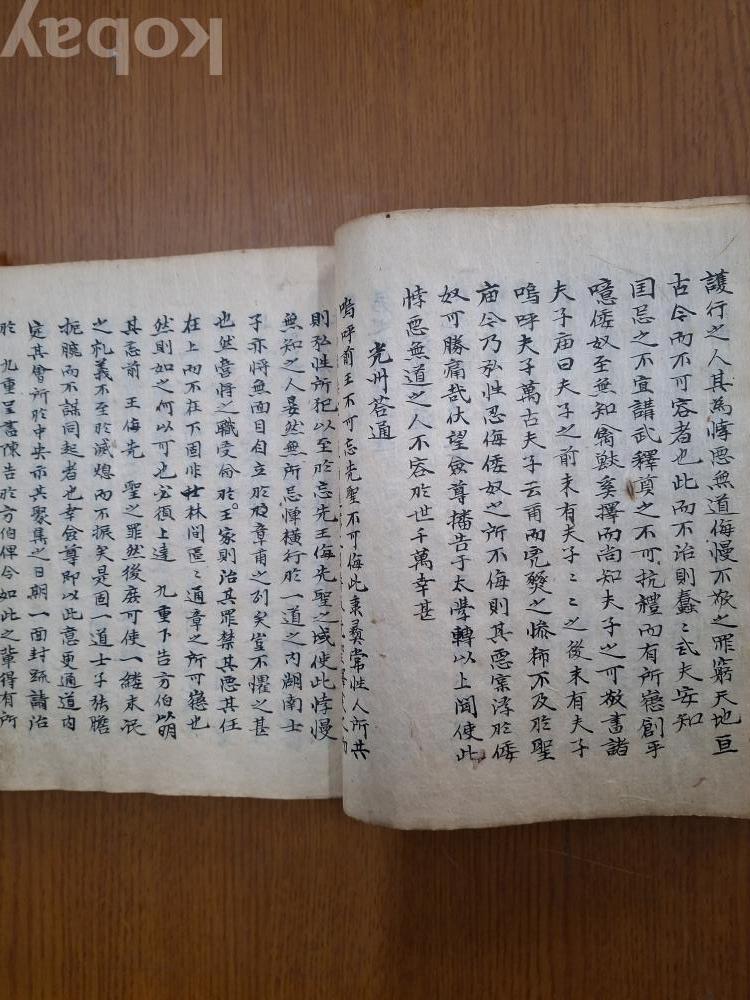 kobay
護行之人其爲悖惡無道侮慢不敬之罪窮天地亘
古今而不可容者也此而不治則蠢〻武夫安知
国忌之不宜講武釋奠之不可抗禮而有所懲創乎
噫倭奴至無知禽獸奚擇而尚知夫子之可敬書諸
夫子庙曰夫子之前未有夫子〻〻之後未有夫子
嗚呼夫子萬古夫子云甫而兇燹之惨柿不及於聖
庙今乃弘性忍侮倭奴之所不侮則其惡寀浮於倭
奴可勝痛哉伏望僉尊播告于太學轉以上聞使此
悖惡無道之人不容於世千萬幸甚
光州荅通
嗚呼前王不可忘先聖不可侮此秉彝常性人所共
則弘性所犯以至於忘先王侮先聖之域使此悖慢
無知之人晏然無所忌憚橫行於一道之内湖南士
子亦將無面目自立於章甫之列矣豈不懼之甚
也然營將之職受命於王家則治其罪禁其惡其任
在上而不在下固非士林間區〻通章之所可懲也
然則如之何以可也必須上達 九重下告方伯以明
其忘前 王侮先 聖之罪然後庶可使一縷未泯
之礼義不至於滅熄而不振矣是固一道士子張膽
扼腕而不謀同起者也幸僉尊即以此意更通道内
定其會所於中央示其聚集之日期一面封疏請治
於 九重呈書陳告於方伯俾令如此之輩得有所